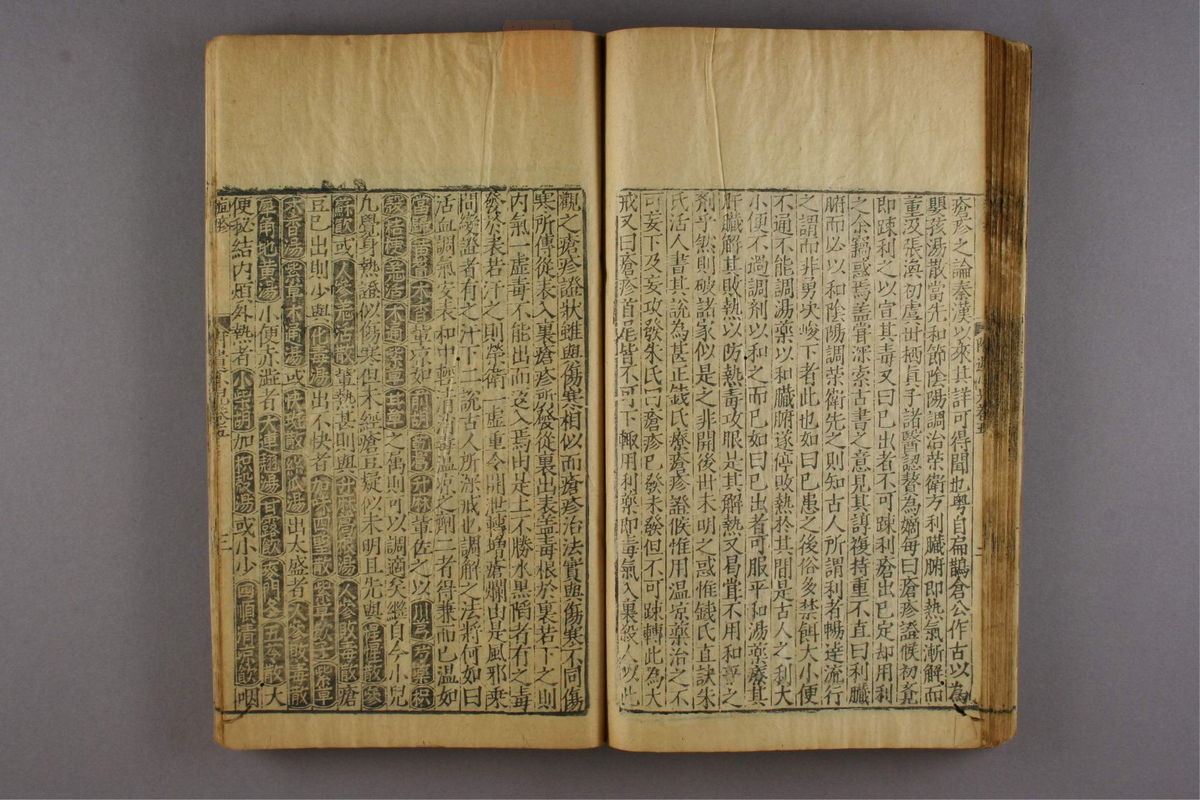 瘡疹之論秦漢以來其詳可得聞也粤自扁鵲倉公作古以為
嬰孩湯散當先和節陰陽調治榮衛方利臟腑即熱氣漸解而
董汲張渙初虞世栖真子諸醫認
為
每曰瘡疹證候初覺
即踈利之以宣其毒又曰已出者不可踈利瘡出已定却用利
之余竊惑焉盖甞深索古書之意見其諄複持重不直曰利臟
腑而以以和陰陽調榮衛先之則知古人所謂利者暢達流行
之謂而非勇决峻下者此也如曰已患之後俗多禁餌大小便
不通不能調湯藥以和臟腑遂
熱於其間是古人之利大
小便不過調劑以和之而已如曰已出者可服平和湯藥療其
肝臟解其敗熱以防熱毒攻眼是其解熱又曷甞不用和平之
劑乎然則破諸家似是之非開後世未明之惑惟錢氏直訣朱
氏活人書其說為甚正錢氏療瘡疹證候惟用温凉藥治之不
可妄下及妄攻發朱氏曰瘡疹已發未發但不可踈轉此為大
戒又曰瘡疹首尾皆不可下輙用利藥即毒氣入裏殺人以此
觀之瘡疹證狀雖與傷寒相似而瘡疹治法實與傷寒不同傷
寒所傳從表入裏瘡疹所發從裏出表盖毒根於裏若下之則
内氣一虚毒不能出而
入焉由是土不勝水黒陷者有之毒
發於表若汗之則榮衛一虚重令開泄轉増瘡爛由是風邪乗
間變證者有之汗下二說古人所深戒也調解之法將何如曰
活血調氣安表和中輕清消毒温凉之劑二者得兼而已温如
當歸黄耆木香輩凉如前胡葛根升麻輩佐之以川芎芍藥枳
殻桔梗羌活木通紫草甘草之属則可以調適矣繼自今小兒
凡覺身熱證似傷寒但未經瘡豆疑似未明且先與惺惺散參
蘇飲或人參羌活散輩熱甚則與升麻葛根湯人參敗毒散瘡
豆已出則少與化毒湯出不快者加味四聖散紫草飲子紫草
木香湯紫草木通湯或快斑散絲瓜湯出太盛者人參敗毒散
犀角地黄湯小便赤澁者大連翹湯甘露飲麥門冬五苓散大
便秘結内煩外熱者小柴胡加枳殻湯或小少四順清凉飲咽